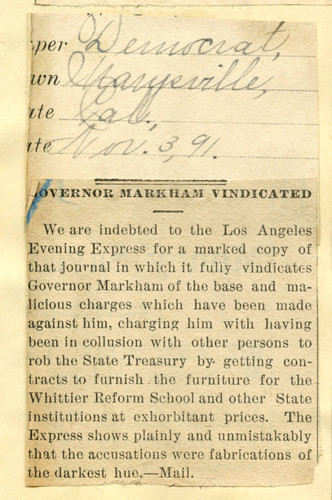 per Democrat,
wn Marysville,
ate Cal.,
ate Nov. 3, 91.
GOVERNOR MARKHAM VINDICATED
We are indebted to the Los Angeles
Evening Express for a marked copy of
that journal in which it fully vindicates
Governor Markham of the base and ma-
licious charges which have been made
against him, charging him with having
been in collusion with other persons to
rob the State Treasury by getting con-
tracts to furnish the furniture for the
Whittier Reform School and other State
institutions at exhorbitant prices. The
Express shows plainly and unmistakably
that the accusations were fabrications of
the darkest hue.—Mail.